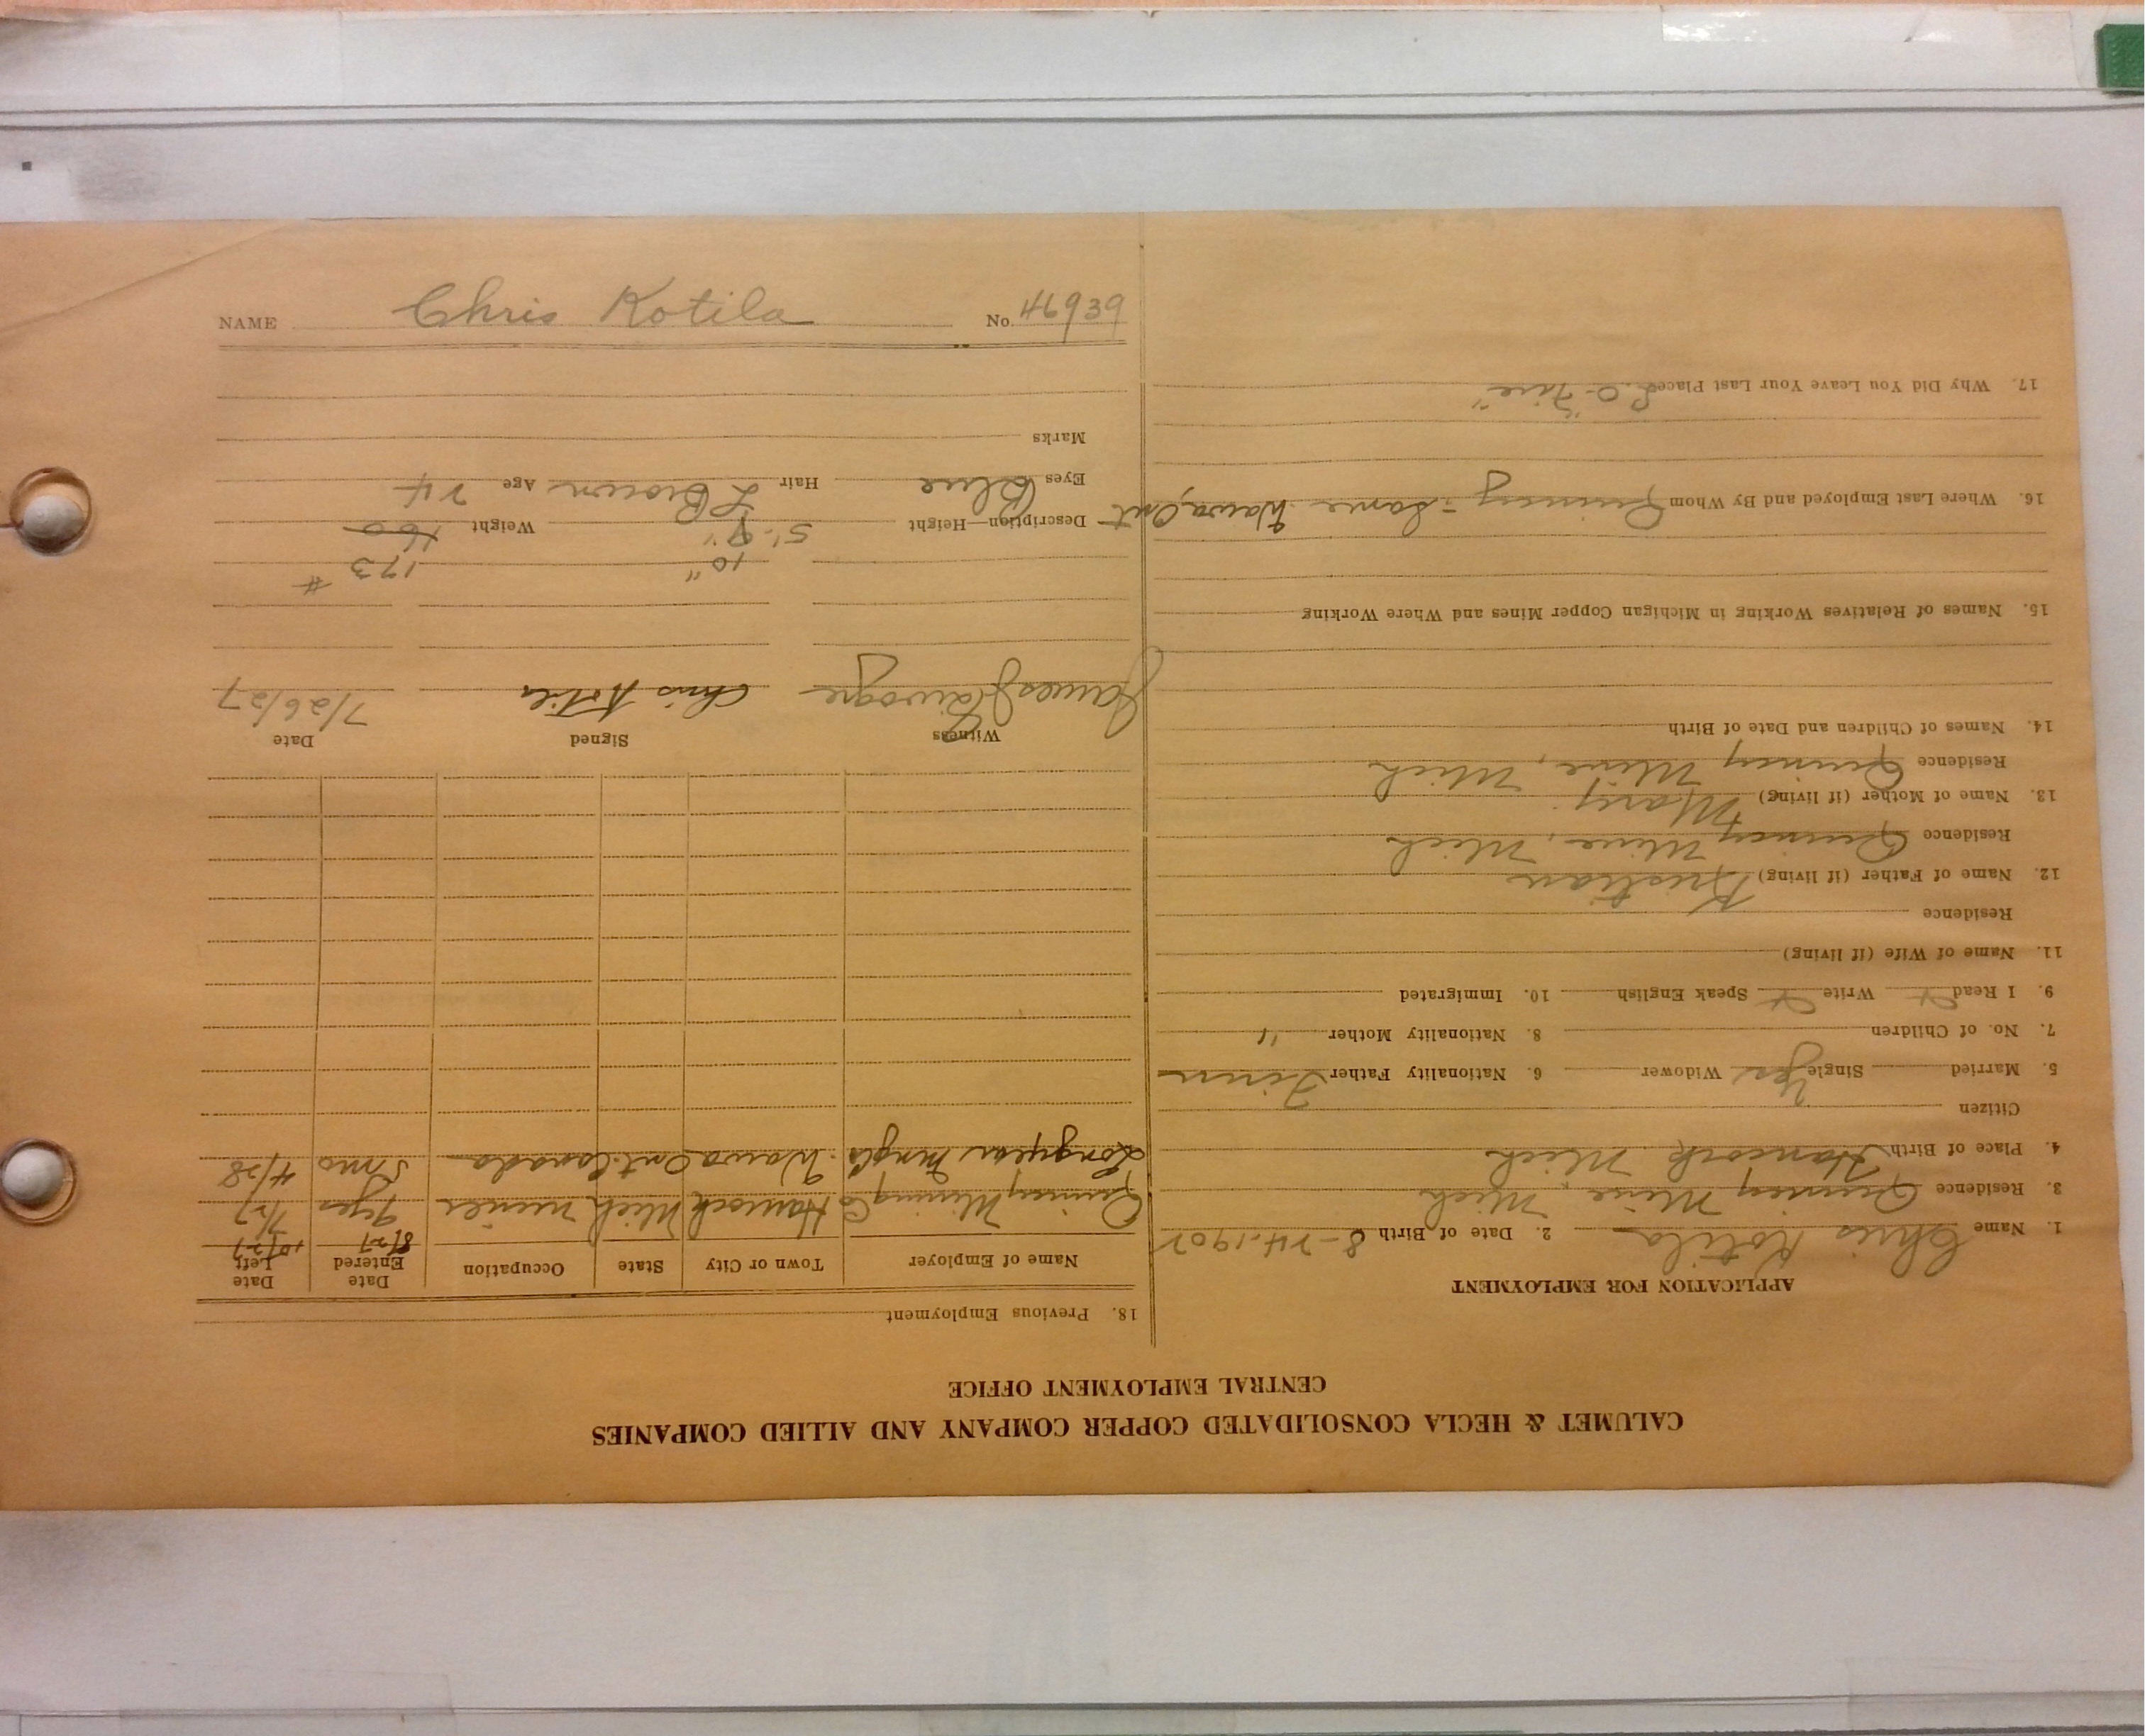 CALUMET & HECLA CONSOLIDATED COPPER COMPANY AND ALLIED COMPANIES
CENTRAL EMPLOYMENT OFFICE
APPLICATION FOR EMPLOYMENT
1. Name Chris Kotila 2. Date of Birth 8-24-1902
3. Residence Quincy Mine, Mich
4. Place of Birth Hancock Mich
Citizen
5. Married Single Yes Widower 6. Nationality Father Finn
7. No. of Children 8. Nationality Mother "
9. I Read Write Speak English 10. Immigrated
11. Name of Wife (if living)
Residence
12. Name of Father (if living) Kristian
Residence Quincy Mine, Mich
13. Name of Mother (if living) Mary
Residence Quincy Mine, Mich
14. Names of Children and Date of Birth
15. Names of Relatives Working in Michigan Copper Mines and Where Working
16. Where Last Employed and By Whom Quincy - Same Wawa, Ont
17. Why Did You Leave Your Last Place "Fire"
18. Previous Employment
Name of Employer Town or City State Occupation Date Entered Date Left
8/27 10/27
Quincy Mining Co Hancock Mich miner 9 yrs 7/27
Longyear Wawa Ont. Canada 5 mo 4/28
Witness Signed Date
James Chris Kotila 7/26/27
10" 173 #
Description—Height 5'-9" Weight 160
Eyes Blue Hair L Brown Age 24
Marks
NAME Chris Kotila No. 46939